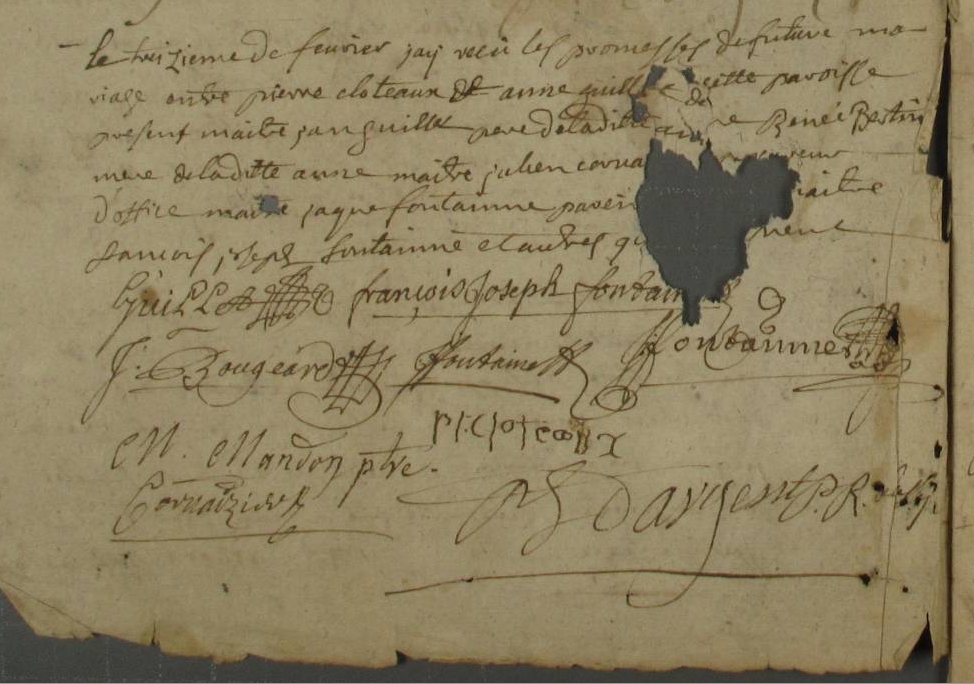 le treizieme de fevrier jay receu les promesses de future ma-
riage entre pierre cloteaux et anne guille de cette paroisse
present maitre jan guille pere de laditte anne Renée Bertin
mere de laditte anne maitre julien corva procureur
d'office maitre jaque fontainne paren maitre
francois joseph fontainne et autres qu nent
Guille françois Joseph fontain
J. Bougeard ffontaine ffontainne
p. cloteaux
M. Mandon ptre.
Corvaizier Dargent P. R.